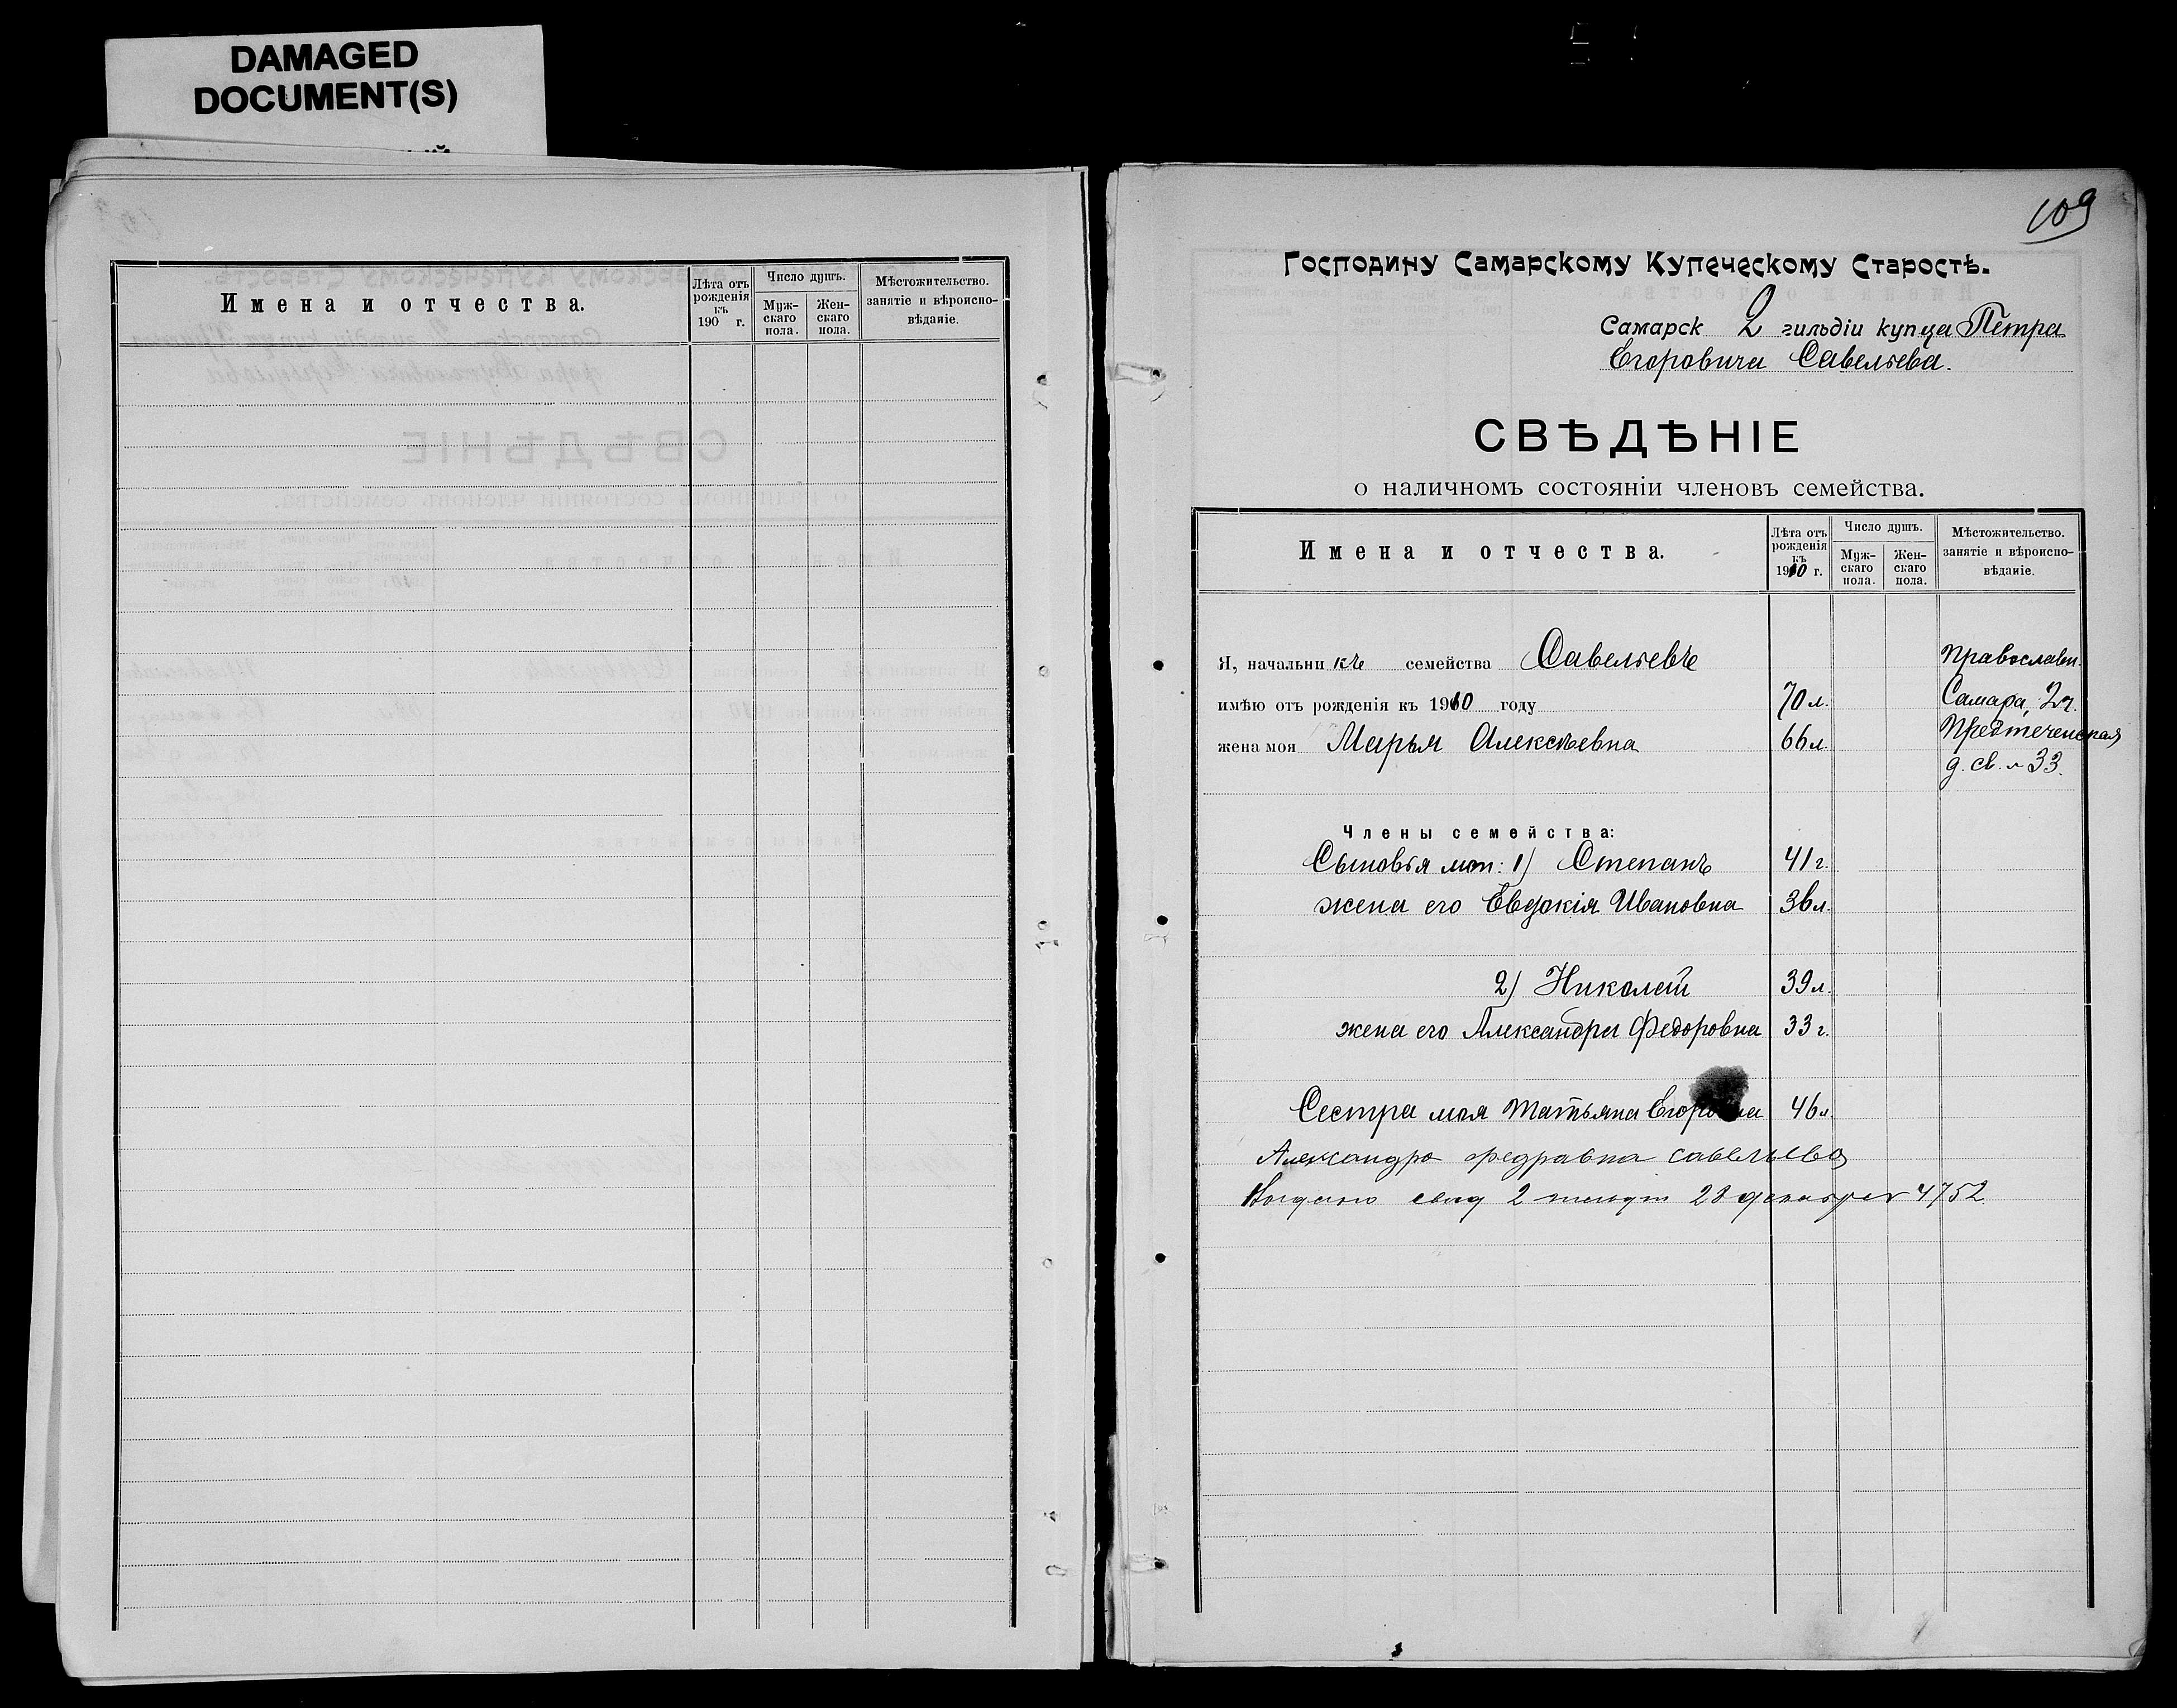 DAMAGED
DOCUMENT(S)
Имена и отчества.
Лѣта отъ рожденія къ 190 г.
Число душъ.
Муж-скаго пола.
Жен-скаго пола.
Мѣстожительство. занятіе и вѣроиспо-вѣданіе.
109
Господину Самарскому Купеческому Старостѣ.
Самарск 2 гильдіи купца Петра
Егоровича Савельева.
СВѢДѢНІЕ
о наличномъ состояніи членовъ семейства.
Имена и отчества.
Лѣта отъ рожденія къ 1910 г.
Число душъ.
Муж-скаго пола.
Жен-скаго пола.
Мѣстожительство. занятіе и вѣроиспо-вѣданіе.
Я, начальникъ семейства Савельевъ Православн.
имѣю отъ рожденія къ 1910 году 70 л. Самара, 2 ч.
жена моя Марья Алексѣевна 66 л. Предтеченская
д. св. № 33.
Члены семейства:
Сыновья мои: 1) Степанъ 41 г.
жена его Евдокія Ивановна 36 л.
2) Николай 39 л.
жена его Александра Федоровна 33 г.
Сестра моя Татьяна Егоровна 46 л.
Александра федравна савельева
2 28 декабря 4752